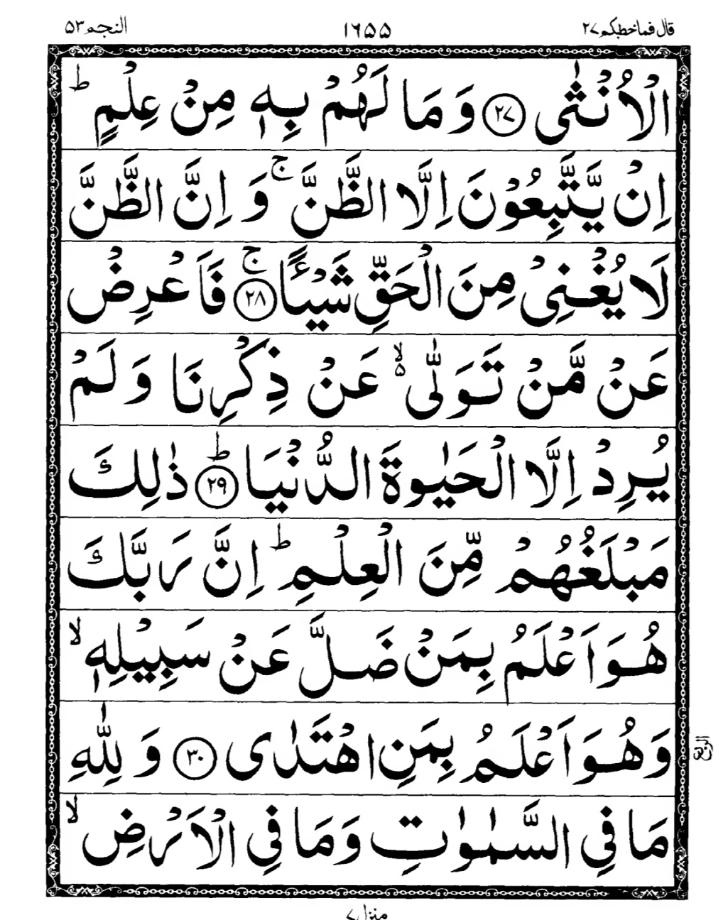 قال فماخطبكم ٢٧ ١٦٥٥ النجم ٥٣
الْاُنْثٰى ﴿٢٧﴾ وَمَا لَهُمْ بِهٖ مِنْ عِلْمٍ ؕ
اِنْ يَّتَّبِعُوْنَ اِلَّا الظَّنَّ ۚ وَ اِنَّ الظَّنَّ
لَا يُغْنِىْ مِنَ الْحَقِّ شَيْـًٔا ۚ ﴿٢٨﴾ فَاَعْرِضْ
عَنْ مَّنْ تَوَلّٰى ۙ۬ عَنْ ذِكْرِنَا وَلَمْ
يُرِدْ اِلَّا الْحَيٰوةَ الدُّنْيَا ؕ ﴿٢٩﴾ ذٰلِكَ
مَبْلَغُهُمْ مِّنَ الْعِلْمِ ؕ اِنَّ رَبَّكَ
هُوَ اَعْلَمُ بِمَنْ ضَلَّ عَنْ سَبِيْلِهٖ ۙ
وَهُوَ اَعْلَمُ بِمَنِ اهْتَدٰى ﴿٣٠﴾ وَ لِلّٰهِ
مَا فِى السَّمٰوٰتِ وَمَا فِى الْاَرْضِ ۙ
الربع
منزل ٧